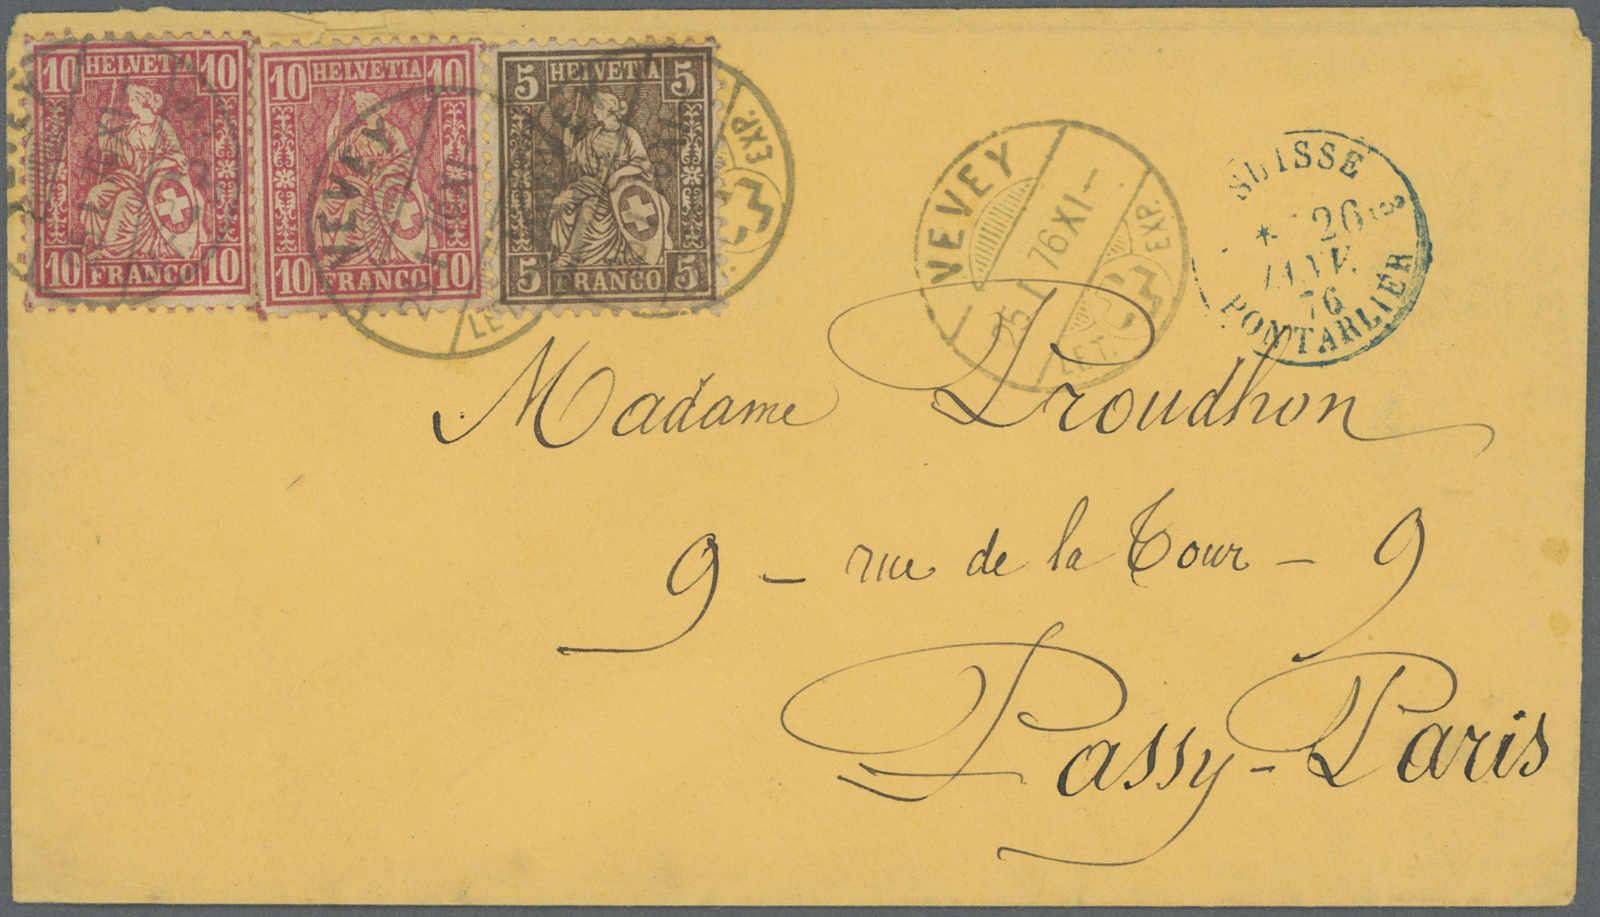 10 HELVETIA 10
10 FRANCO 10
10 HELVETIA 10
10 FRANCO 10
5 HELVETIA 5
5 FRANCO 5
VEVEY
LET
EXP.
VEVEY
25 I 76 XI -
LET. EXP.
SUISSE
* 26
JANV.
76
PONTARLIER
Madame Proudhon
9 - rue de la Tour - 9
Passy - Paris